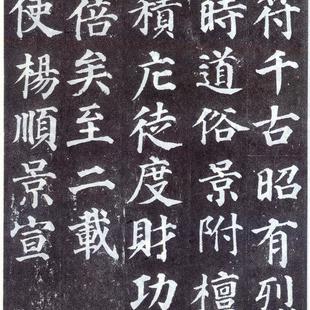 符千古昭有烈
時道俗景附檀
積庀徒度財功
倍矣至二載
使楊順景宣